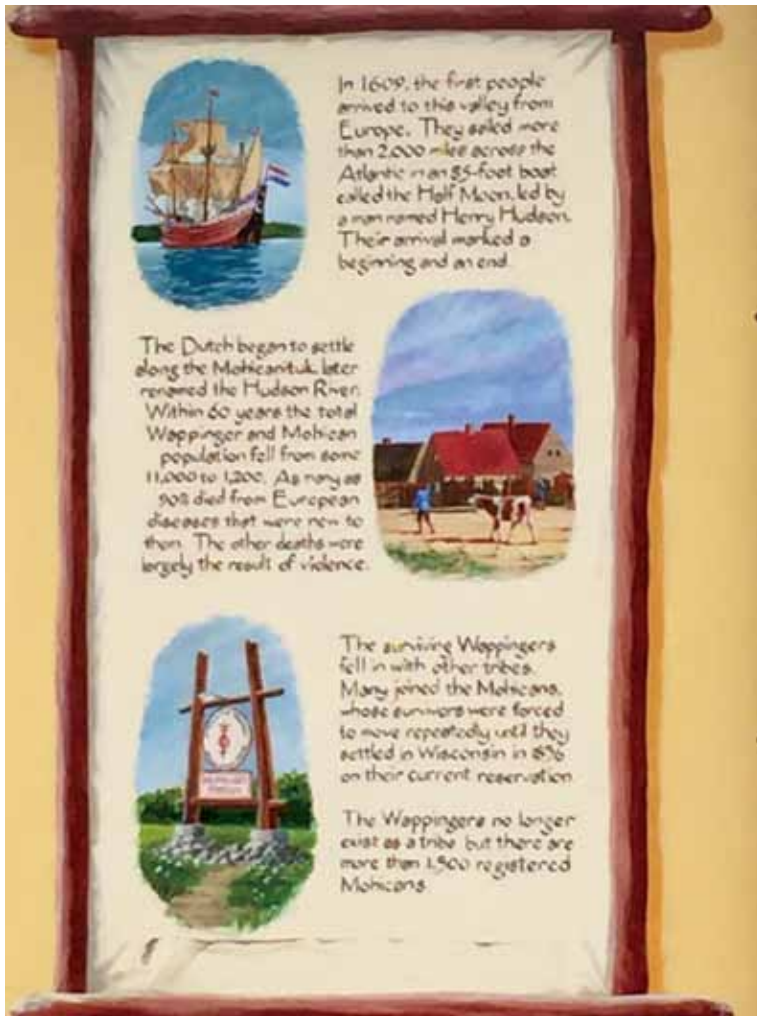 In 1609, the first people
arrived to this valley from
Europe. They sailed more
than 2,000 miles across the
Atlantic in an 85-foot boat
called the Half Moon, led by
a man named Henry Hudson.
Their arrival marked a
beginning and an end.
The Dutch began to settle
along the Mohicanituk, later
renamed the Hudson River.
Within 60 years the total
Wappinger and Mohican
population fell from some
11,000 to 1,200. As many as
90% died from European
diseases that were new to
them. The other deaths were
largely the result of violence.
The surviving Wappingers
fell in with other tribes.
Many joined the Mohicans,
whose survivors were forced
to move repeatedly until they
settled in Wisconsin in
on their current reservation.
The Wappingers no longer
exist as a tribe, but there are
more than 1,500 registered
Mohicans.